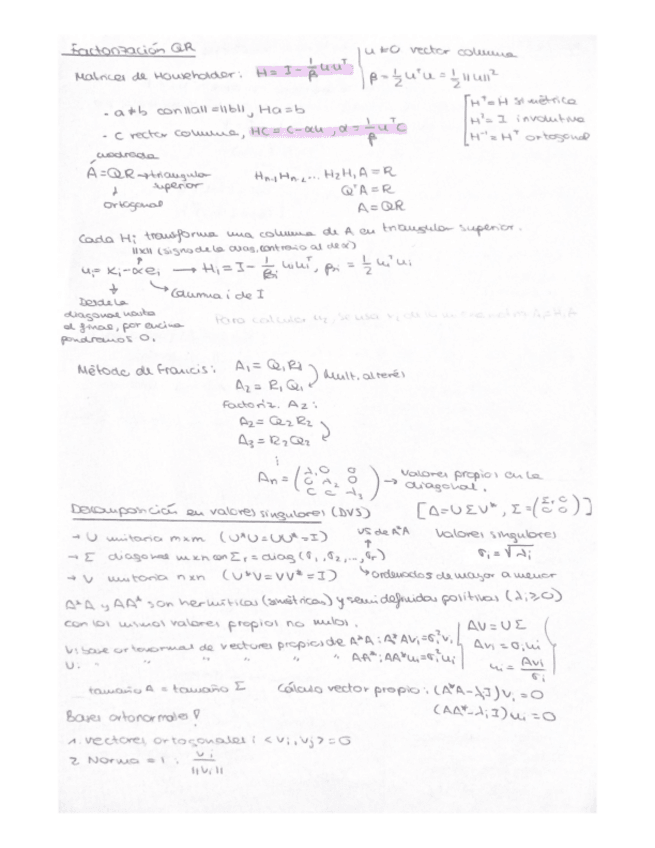 Factorización QR
Matrices de Householder: H = I - 1/β u uᵀ
u ≠ 0 vector columna
β = 1/2 uᵀu = 1/2 ||u||²
· a ≠ b con ||a|| = ||b||, Ha = b
· c vector columna, HC = C - αu, α = 1/β uᵀC
Hᵀ = H simétrica
H² = I involutiva
H⁻¹ = Hᵀ ortogonal
cuadrada
A = QR → triangular superior
↓
ortogonal
Hn-1 Hn-2 ... H2 H1 A = R
QᵀA = R
A = QR
Cada Hi transforma una columna de A en triangular superior.
||x|| (signo de la diag. contrario al de x)
ui = xi - αei → Hi = I - 1/βi ui uiᵀ, βi = 1/2 uiᵀ ui
Columna i de I
Desde la
diagonal hasta
el final, por encima
pondremos 0.
Para calcular
Método de Francis: A1 = Q1R1
A2 = R1Q1
Mult. alterés
Factoriz. A2:
A2 = Q2R2
A3 = R2Q2
⋮
An = (λ1 0 0
0 λ2 0
0 0 λ3) → Valores propios en la
diagonal.
Descomposición en valores singulares (DVS) [A = UΣV*, Σ = (Σr 0
0 0)]
→ U unitaria mxm (U*U = UU* = I)
VS de A*A
Valores singulares
→ Σ diagonal mxn con Σr = diag(σ1, σ2, ..., σr)
σi = √λi
→ V unitaria nxn (V*V = VV* = I)
ordenados de mayor a menor
A*A y AA* son hermíticas (simétricas) y semidefinidas positivas (λi ≥ 0)
con los mismos valores propios no nulos.
V: base ortonormal de vectores propios de A*A: A*Avi = σi²vi
U: " " " " " AA*: AA*ui = σi²ui
AV = UΣ
Avi = σiui
ui = Avi/σi
tamaño A = tamaño Σ
Cálculo vector propio: (A*A - λiI)vi = 0
(AA* - λiI)ui = 0
Bases ortonormales!
1. Vectores ortogonales: <vi, vj> = 0
2. Norma = 1: vi/||vi||